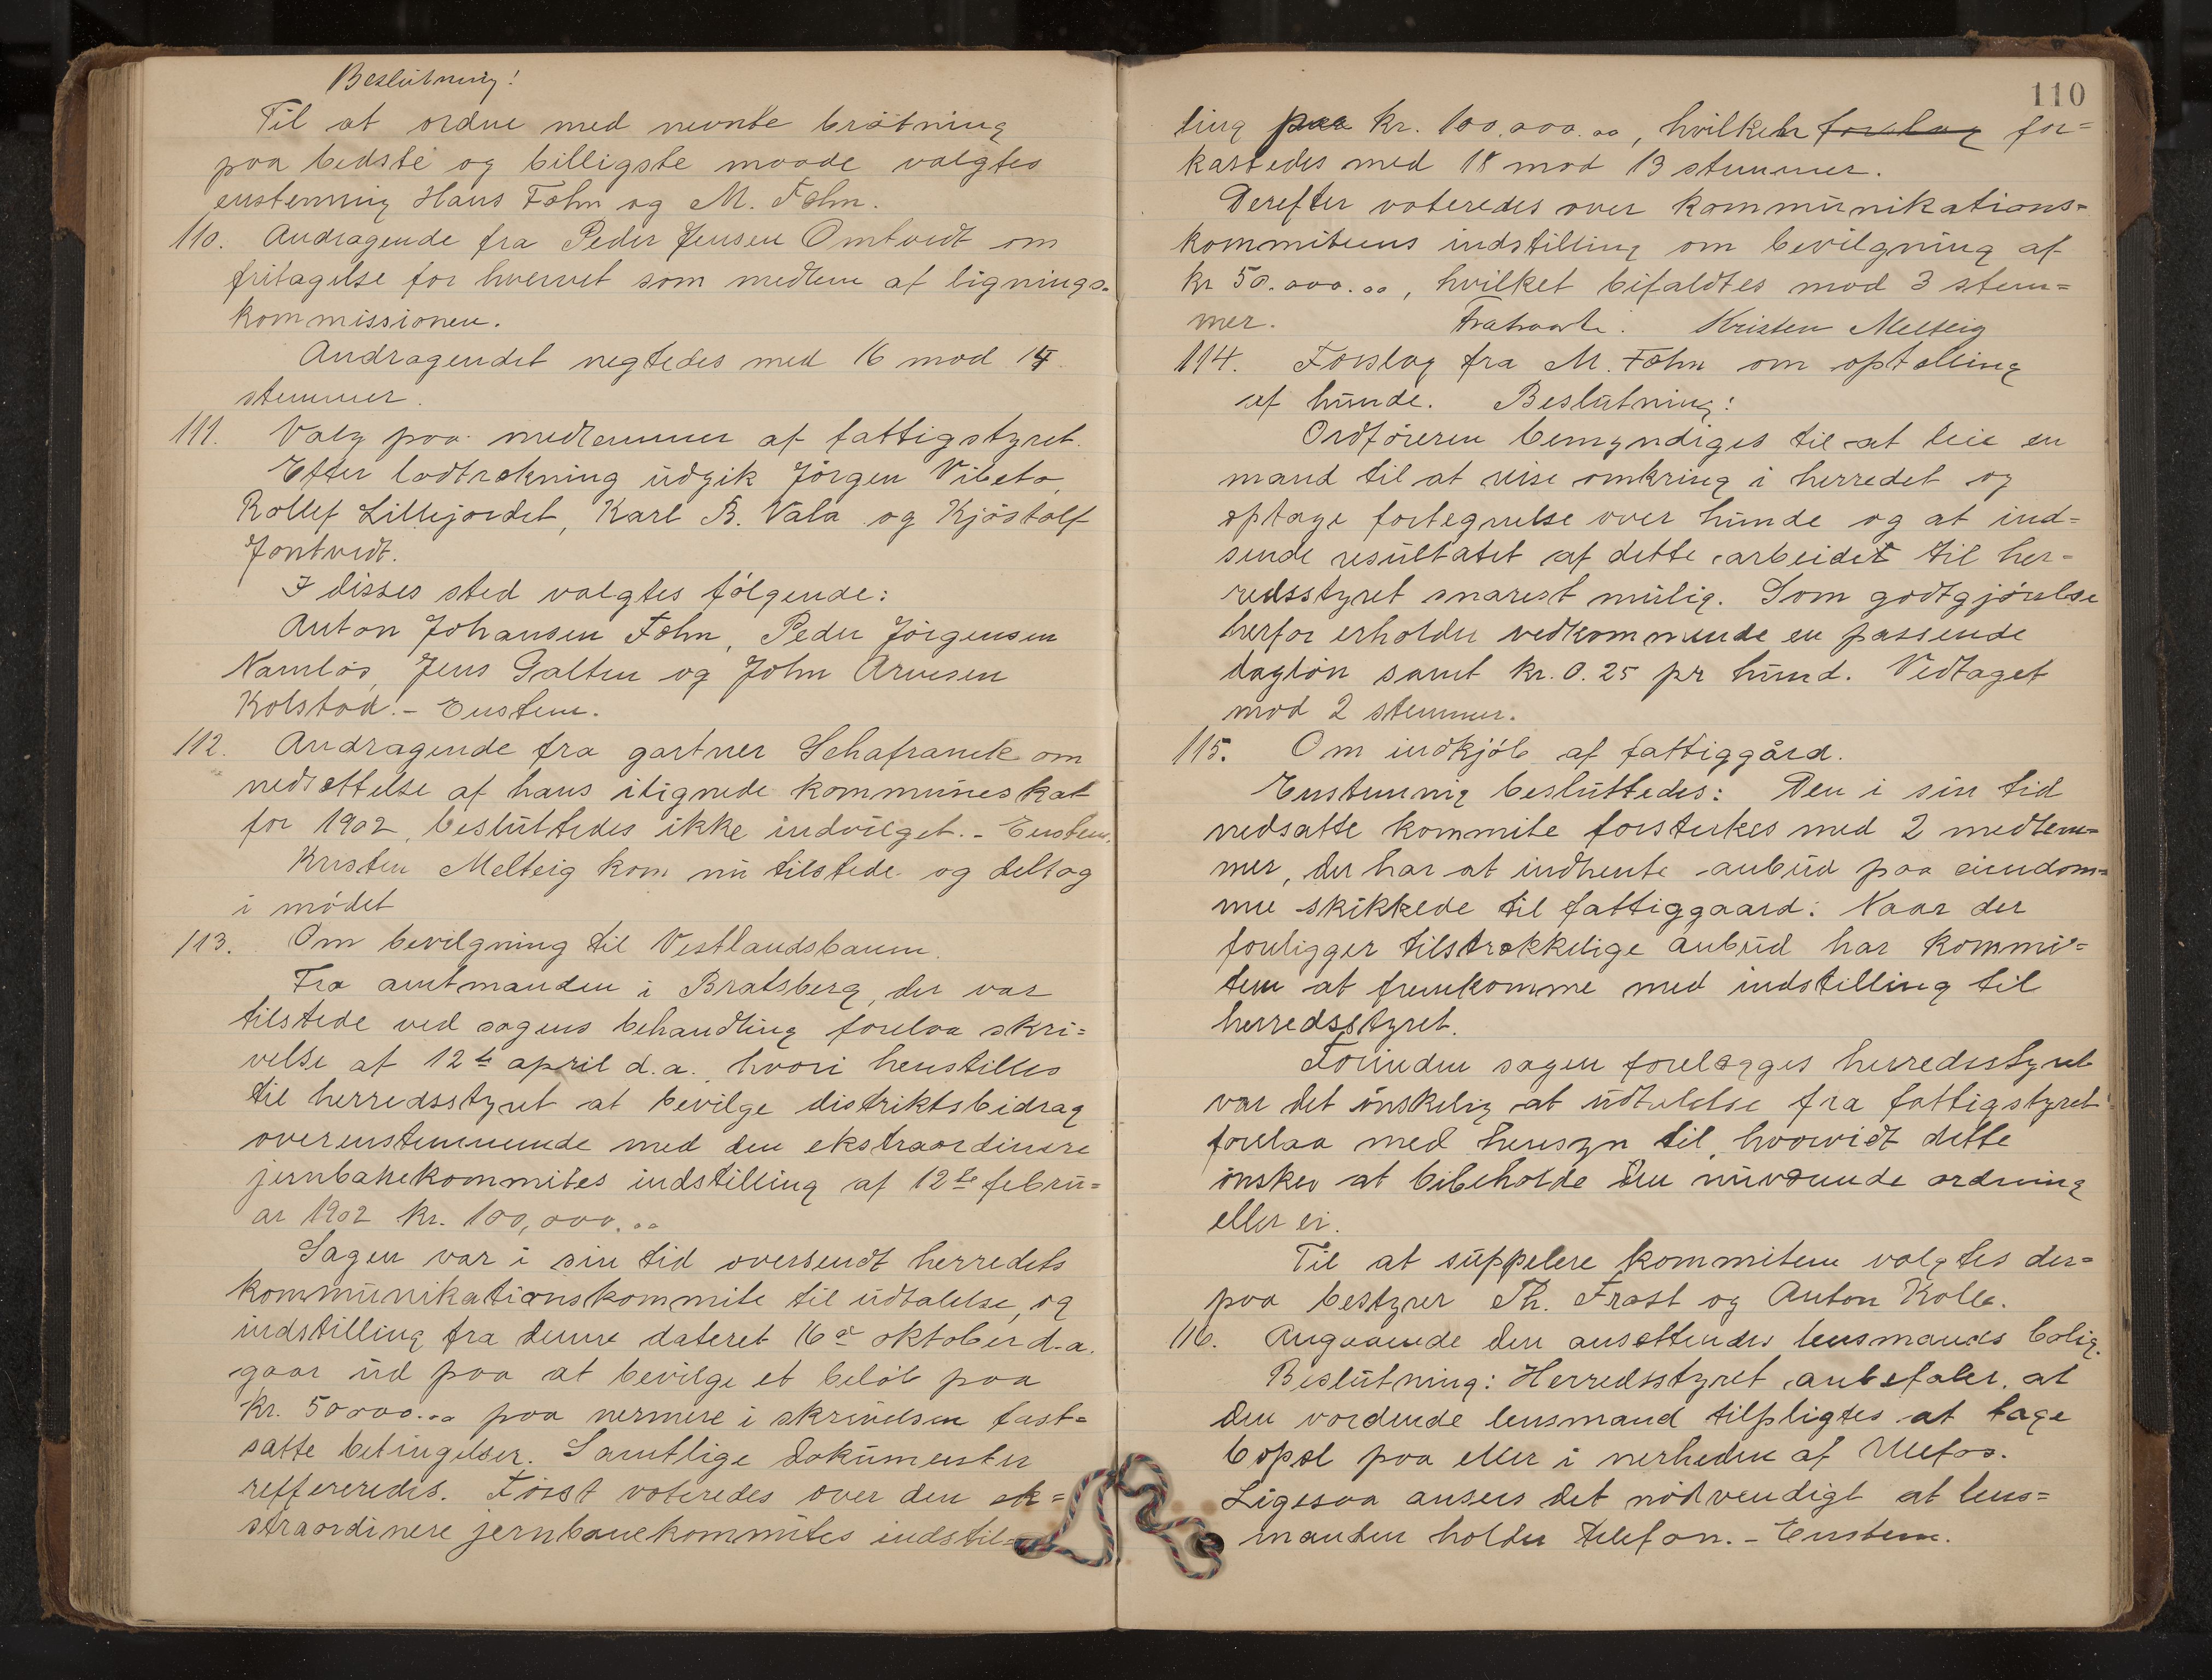 Beslutning!
Til at ordne med nevnte brøtning
paa bedste og billigste maade valgtes
enstemmig Hans Fæhn og M. Fæhn.
110. Andragende fra Peder Jensen Omtvedt om
fritagelse for hvervet som medlem af lignings-
kommissionen.
Andragendet negtedes med 16 mod 14
stemmer.
111. Valg paa medlemmer af fattigstyret.
Efter lodtrækning udgik Jørgen Vibeto,
Rollef Lillejordet, Karl B. Vala og Kjøstolf
Jontvedt.
I disses sted valgtes følgende:
Anton Johansen Fæhn, Peder Jørgensen
Namløs, Jens Galten og John Arvesen
Kolstad. - Enstem.
112. Andragende fra gartner Schafranek om
nedsættelse af hans ilignede kommuneskat
for 1902, besluttedes ikke indvilget. - Enstem.
Kristen Melteig kom nu tilstede og deltog
i mødet
113. Om bevilgning til Vestlandsbanen.
Fra amtmanden i Bratsberg, der var
tilstede ved sagens behandling forelaa skri=
velse af 12te april d.a., hvori henstilles
til herredsstyret at bevilge distriktsbidrag
overenstemmende med den ekstraordinære
jernbanekommites indstilling af 12te febru=
ar 1902 kr. 100,000.00
Sagen var i sin tid oversendt herredets
kommunikationskommite til udtalelse, og
indstilling fra denne dateret 16de oktober d.a.
gaar ud paa at bevilge et beløb paa
kr. 50000.00 paa nermere i skrivelsen fast=
satte betingelser. Samtlige dokumenter
reffereredes. Først voteredes over den ek=
straordinere jernbanekommites indstil=
110
ling paa kr. 100.000.00, hvilken forslag for=
kastedes med 18 mod 13 stemmer.
Derefter voteredes over kommunikations=
kommiteens indstilling om bevilgning af
kr 50.000.00, hvilket bifaldtes mod 3 stem=
mer. Fratraadte. Kristen Melteig
114. Forslag fra M. Fæhn om optælling
af hunde. Beslutning:
Ordføreren bemyndiges til at leie en
mand til at reise omkring i herredet og
optage fortegnelse over hunde og at ind=
sende resultatet af dette arbeidet til her=
redsstyret snarest mulig. Som godtgjørelse
herfor erholder vedkommende en passende
dagløn samt kr. 0.25 pr hund. Vedtaget
mod 2 stemmer.
115. Om indkjøb af fattiggård.
Enstemmig besluttedes: Den i sin tid
nedsatte kommite forsterkes med 2 medlem=
mer, der har at indhente anbud paa eiendom=
me skikkede til fattiggaard. Naar der
foreligger tilstrækkelige anbud har kommi=
teen at fremkomme med indstilling til
herredsstyret.
Forinden sagen forelægges herredsstyret
var det ønskelig at udtalelse fra fattigstyret
forelaa med hensyn til, hvorvidt dette
ønsker at bibeholde den nuværende ordning
eller ei.
Til at suppelere kommiteen valgtes der=
paa bestyrer Th. Frost og Anton Kolle.
116. Angaaende den ansættendes lensmands bolig.
Beslutning: Herredsstyret anbefaler, at
den vordende lensmand tilpligtes at tage
bopæl paa eller i nerheden af Ulefos.
Ligesaa ansees det nødvendigt at lens=
manden holder telefon. - Enstem.